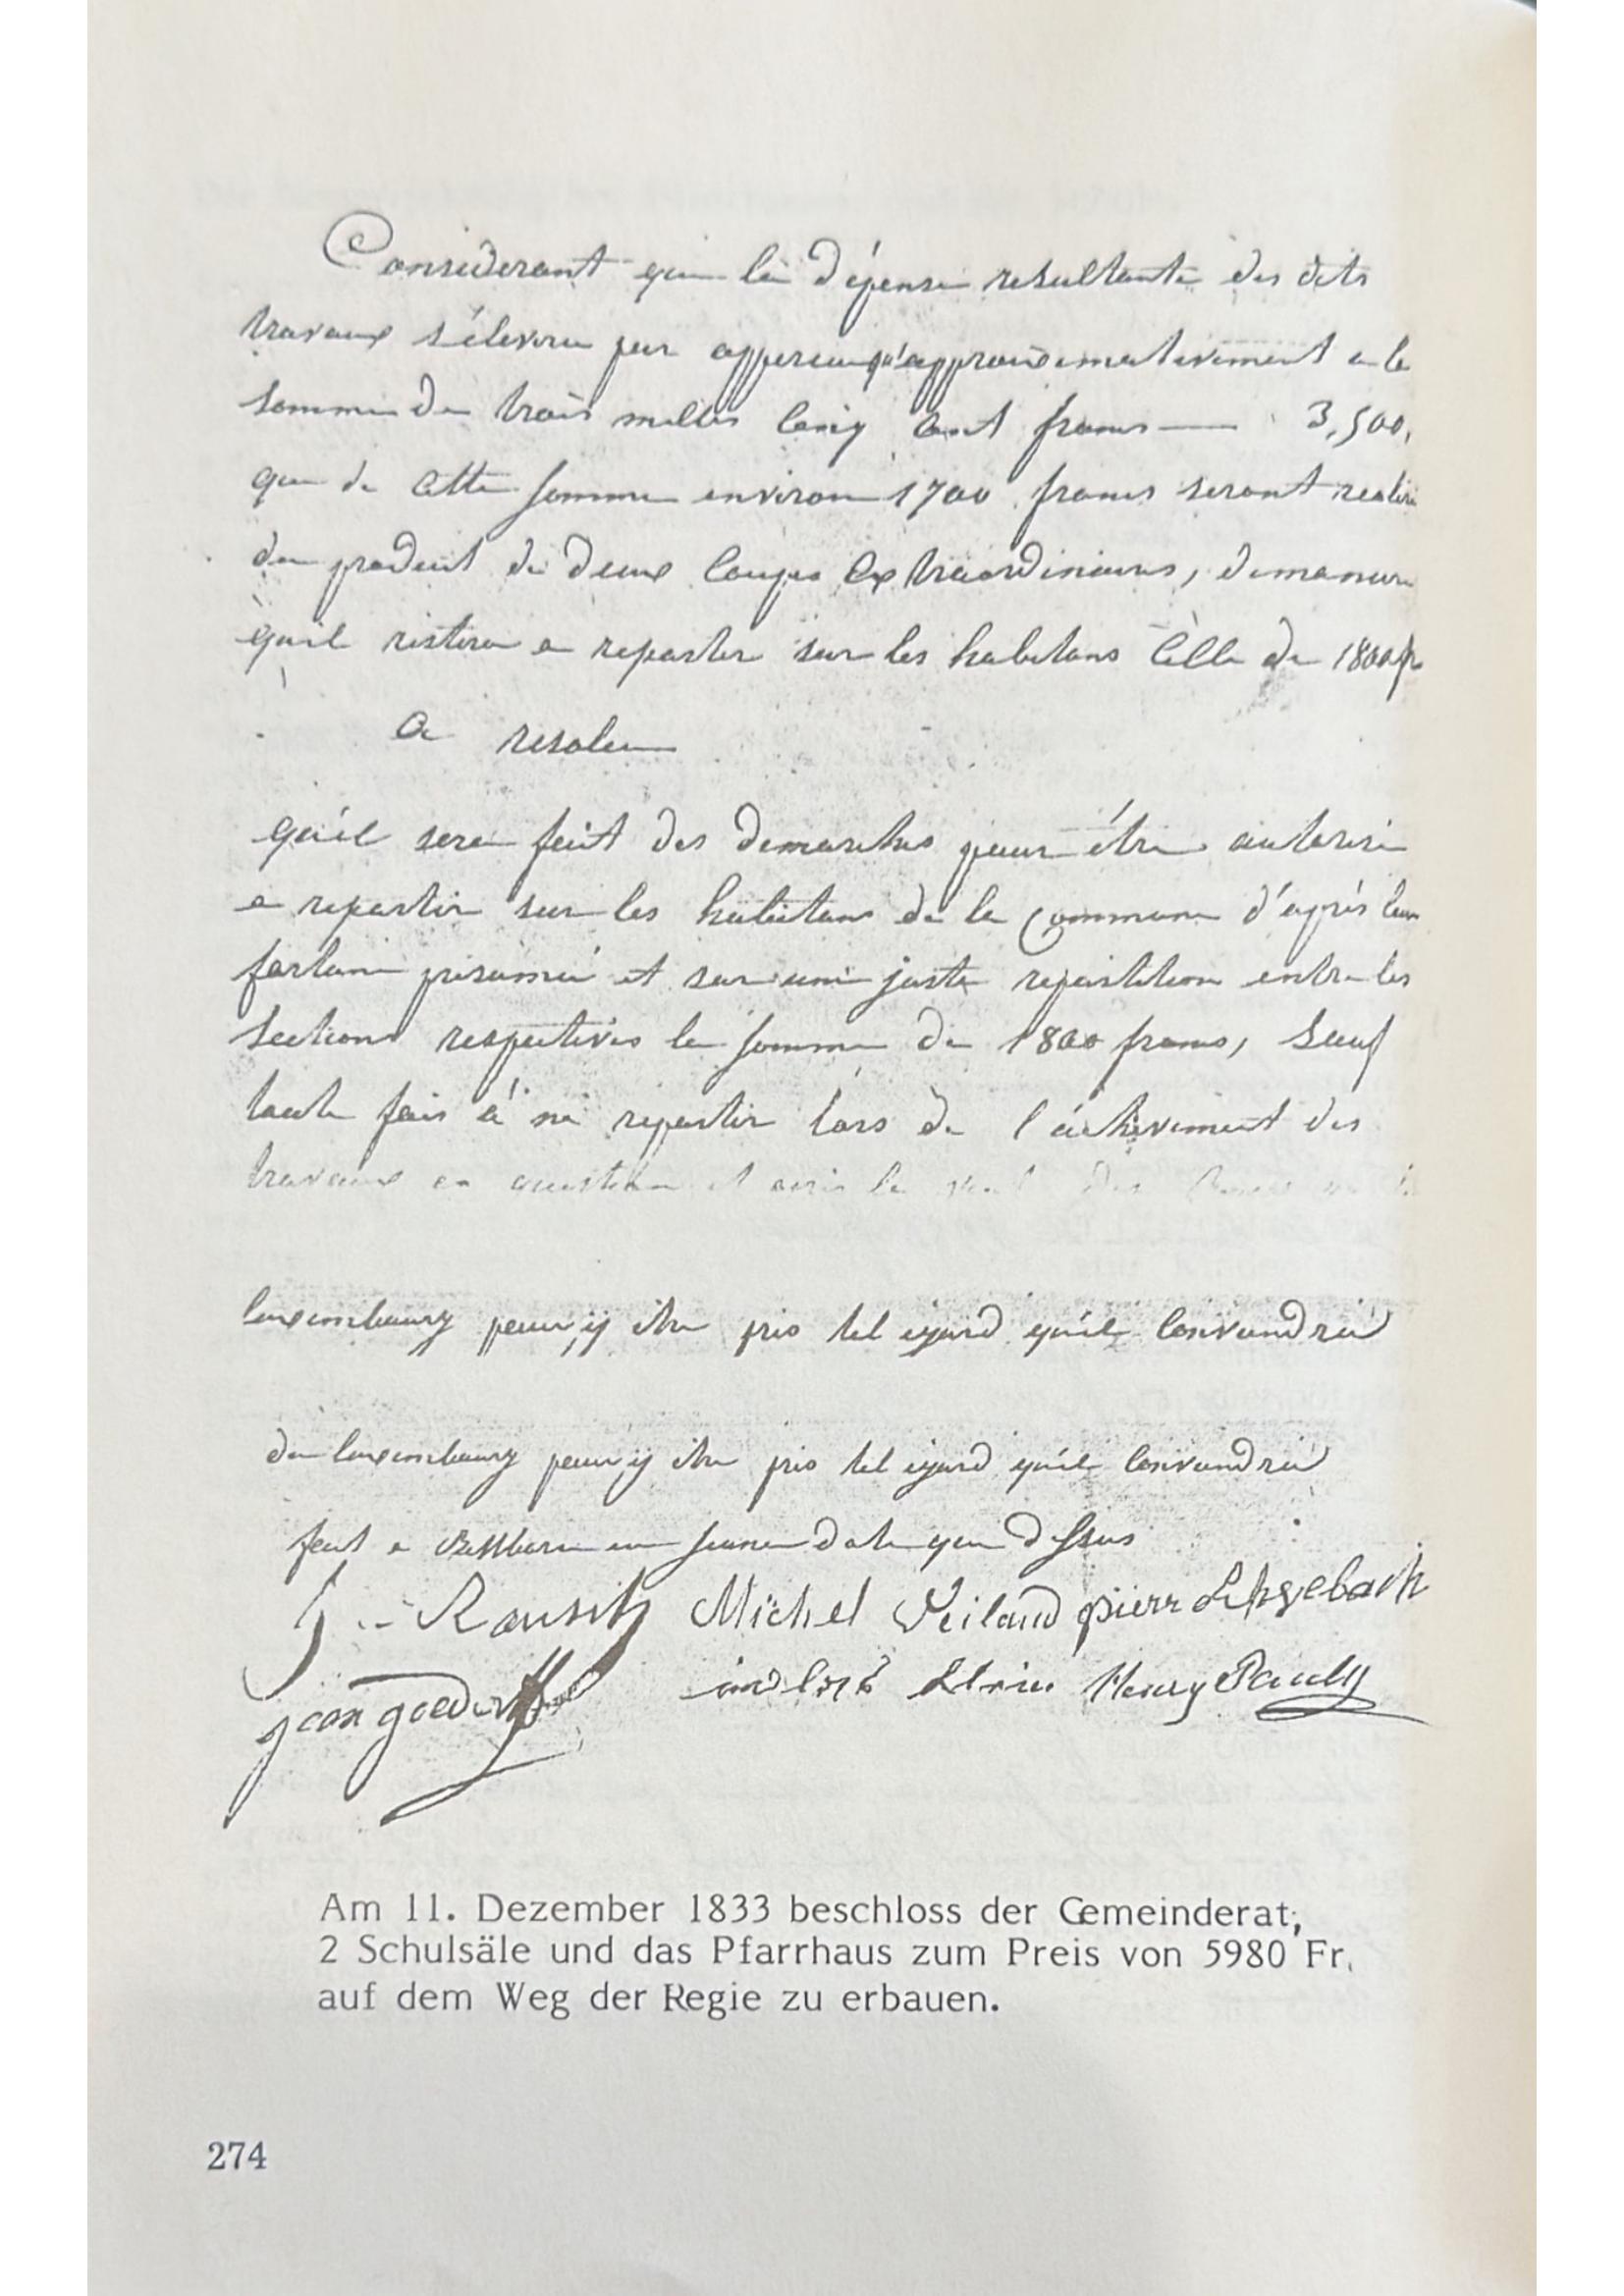 Considerant que la dépense resultante des dits
travaux s'élevera par appercu qu'approximativement a la
somme de trois milles cinq cent francs — 3,500,
que de cette somme environ 1700 francs seront realisé
du produit de deux coupes extraordinaires, de maniere
qu'il restera a repartir sur les habitans celle de 1800 fr
a resolu
qu'il sera fait des demarches pour être autorisé
a repartir sur les habitans de la Commune d'après leur
fortune présumé et sur une juste repartition entre les
sections respectives la somme de 1800 francs, sauf
toute fois à ne repartir lors de l'achevement des
travaux en question et
luxembourg pour y être pris tel egard qu'il conviendra
du luxembourg pour y être pris tel egard qu'il conviendra
fait a en seance date que dessus
Michel Weiland pierr
jean Henry Pauly
Am 11. Dezember 1833 beschloss der Gemeinderat,
2 Schulsäle und das Pfarrhaus zum Preis von 5980 Fr.
auf dem Weg der Regie zu erbauen.
274